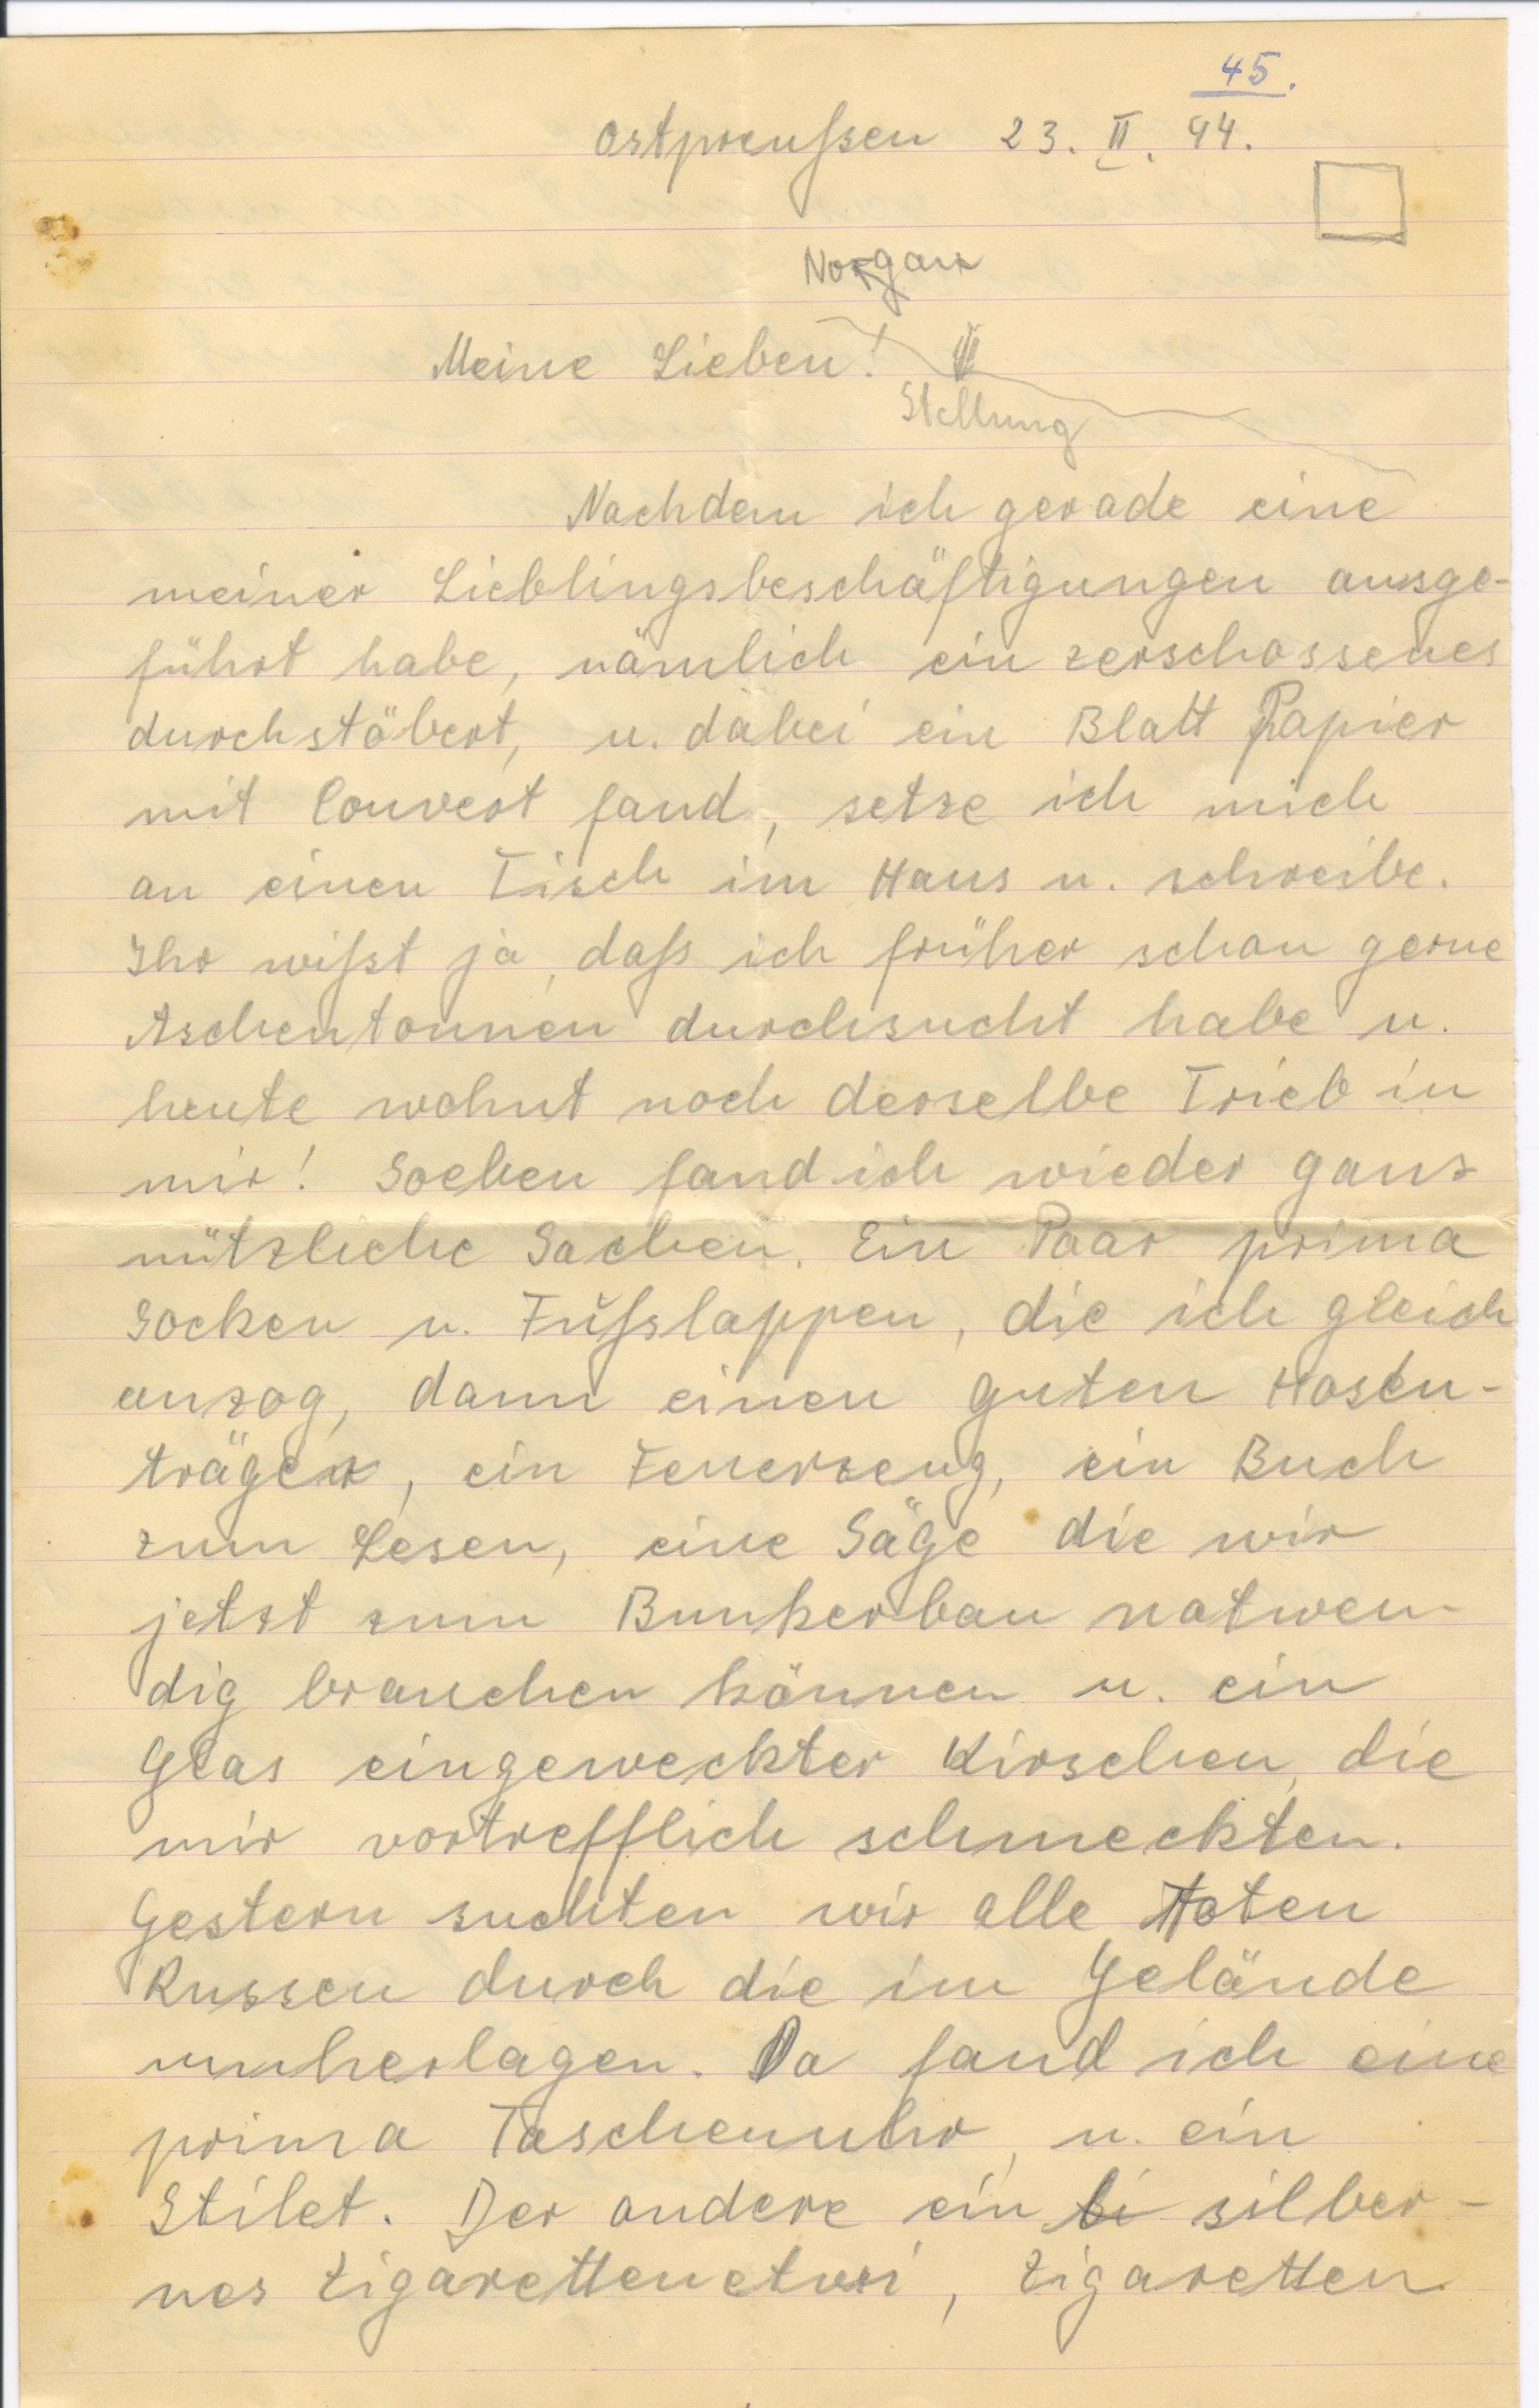 45.
Ostpreußen 23. II. 44.
Norgau
Meine Lieben!
Stellung
Nachdem ich gerade eine
meiner Lieblingsbeschäftigungen ausge-
führt habe, nämlich ein zerschossenes
durchstöbert, u. dabei ein Blatt Papier
mit Couvert fand, setze ich mich
an einen Tisch im Haus u. schreibe.
Ihr wißt ja, daß ich früher schon gerne
Aschentonnen durchsucht habe u.
heute wohnt noch derselbe Trieb in
mir! Soeben fand ich wieder ganz
nützliche Sachen. Ein Paar prima
Socken u. Fußslappen, die ich gleich
anzog, dann einen guten Hosen-
träger, ein Feuerzeug, ein Buch
zum Lesen, eine Säge die wir
jetzt zum Bunkerbau notwen-
dig brauchen können u. ein
Glas eingeweckter Kirschen, die
mir vortrefflich schmeckten.
Gestern suchten wir alle Toten
Russen durch die im Gelände
umherlagen. Da fand ich eine
prima Taschenuhr, u. ein
Stilet. Der andere ein si silber-
nes Zigarettenetui, Zigaretten